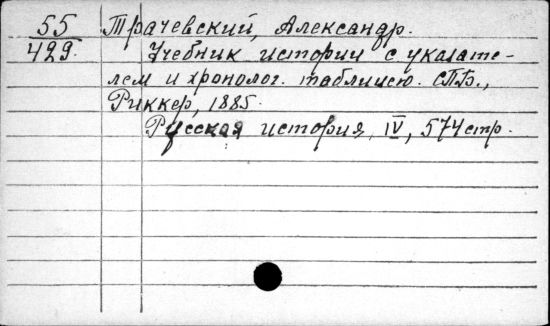 55 Трачевский, Александр.
429. Учебник истории с указате-
лем и хронолог. таблицею. СПБ.,
Риккер, 1885.
Русская история, IV, 574 стр.